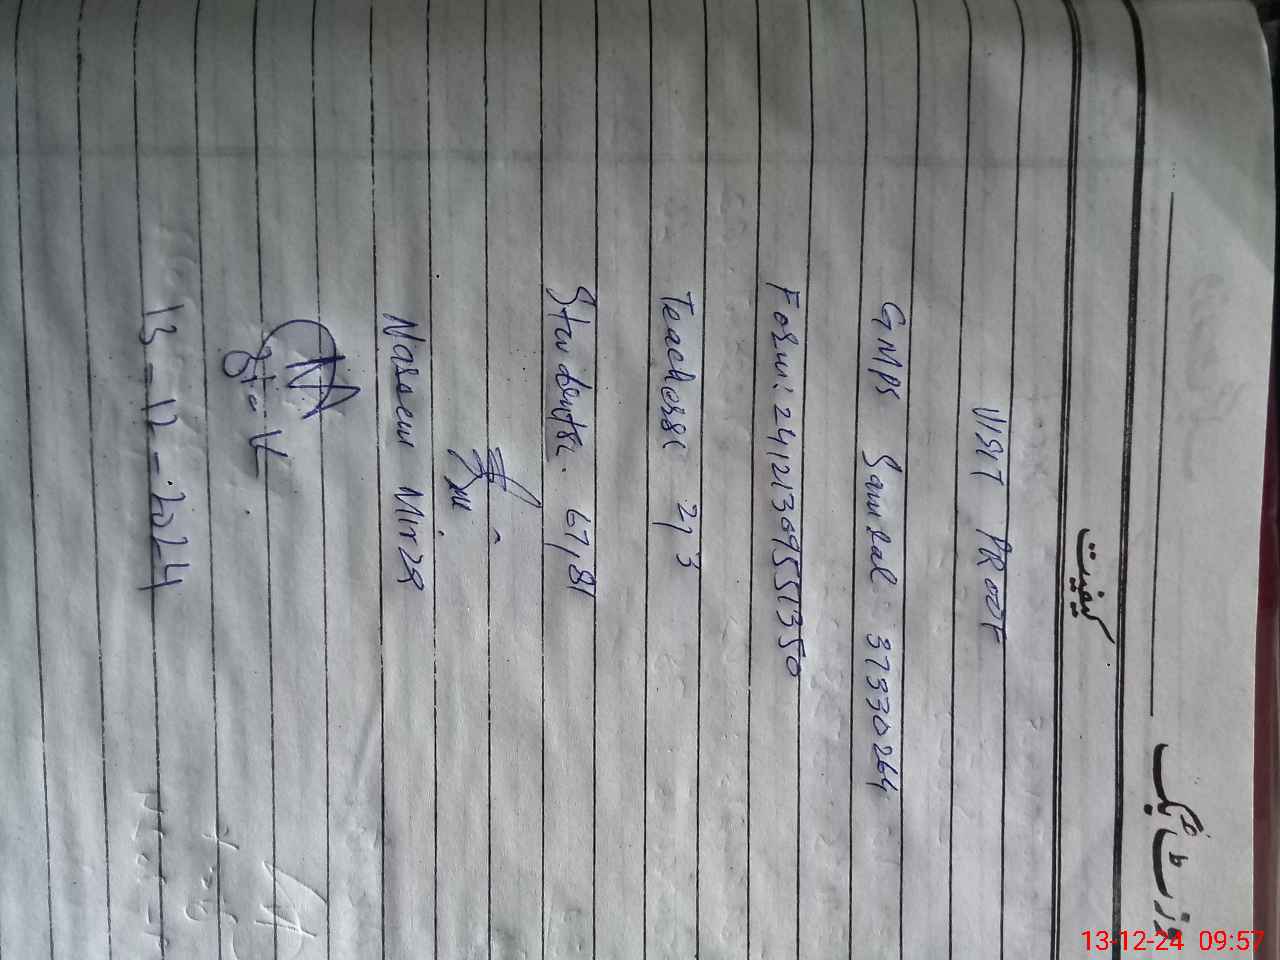 وزٹ بک
کیفیت
VISIT PROOF
GMPS Samral 37330264
Form: 241213095551350
Teachers: 2, 3
Students: 67, 81
Naseem Mirza
13-12-2024
13-12-24 09:57